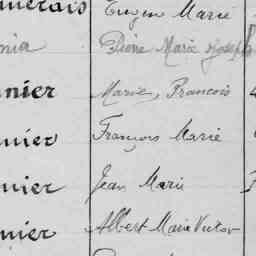 Eugène Marie
Pierre Marie Joseph
nier Marie, François
nier François Marie
nier Jean Marie
nier Albert Marie Victor